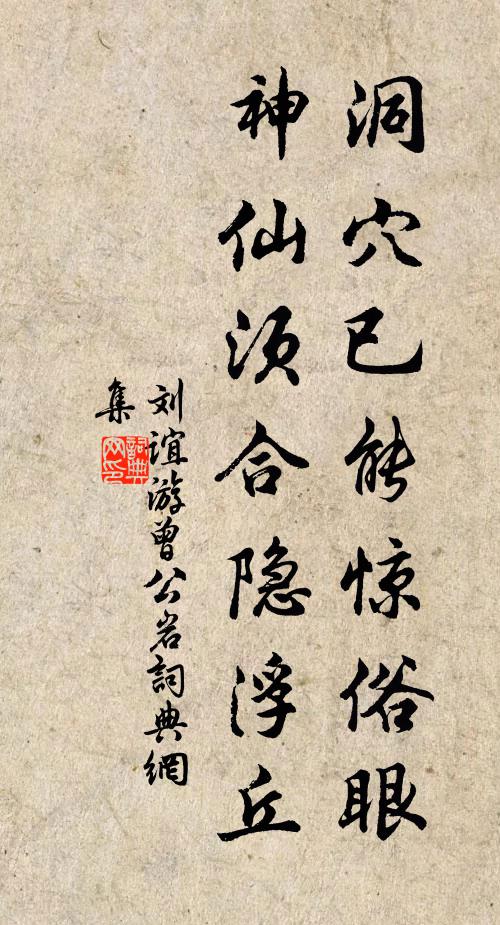 洞穴已能惊俗眼
神仙须合隐浮丘
刘谊游曾公岩詞典網
集
詞典
网印